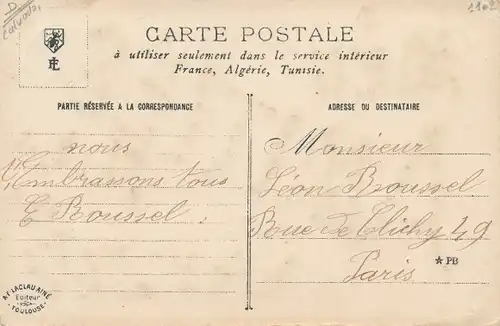 D
Calvados
1102
EL
CARTE POSTALE
à utiliser seulement dans le service intérieur
France, Algérie, Tunisie.
PARTIE RÉSERVÉE A LA CORRESPONDANCE
nous
Embrassons tous
E Roussel
ADRESSE DU DESTINATAIRE
Monsieur
Léon Roussel
Rue de Clichy 49
Paris
★PB
A.F. LACLAU AINÉ
Editeur
TOULOUSE